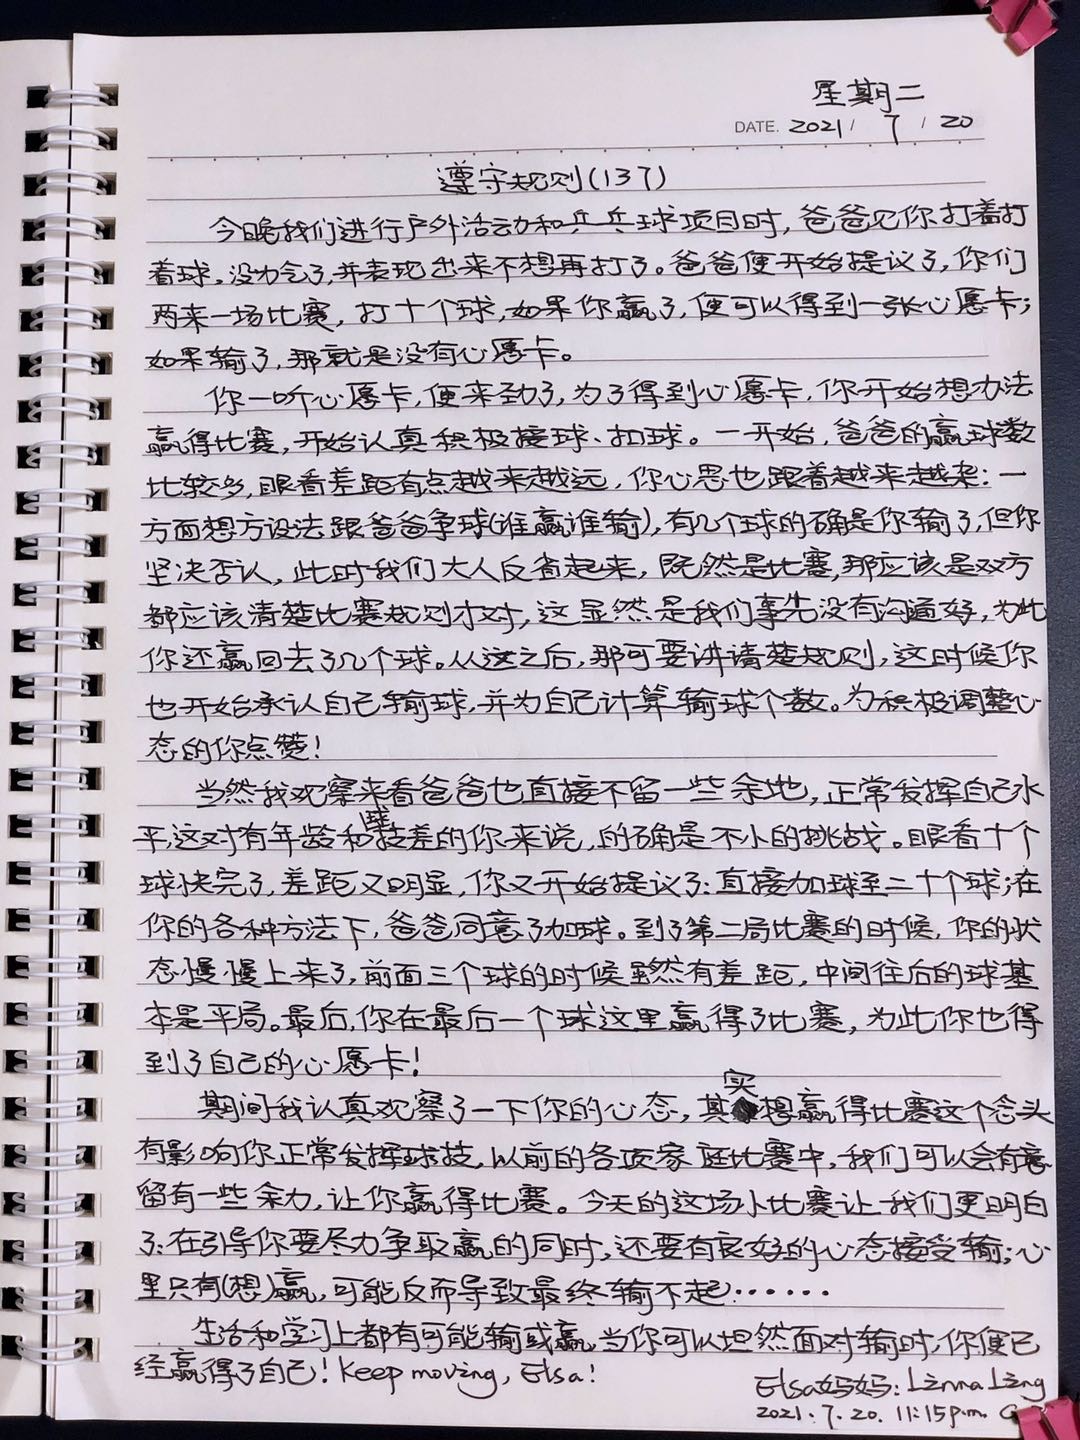 星期二
DATE. 2021 / 7 / 20
遵守规则(137)
今晚我们进行户外活动和乒乓球项目时,爸爸见你打着打
着球,没力气了,并表现出来不想再打了。爸爸便开始提议了,你们
两来一场比赛,打十个球,如果你赢了,便可以得到一张心愿卡;
如果输了,那就是没有心愿卡。
你一听心愿卡,便来劲了,为了得到心愿卡,你开始想办法
赢得比赛,开始认真积极接球、扣球。一开始,爸爸的赢球数
比较多,眼看差距有点越来越远,你心思也跟着越来越杂:一
方面想方设法跟爸爸争球(谁赢谁输),有几个球的确是你输了,但你
坚决否认,此时我们大人反省起来,既然是比赛,那应该是双方
都应该清楚比赛规则才对,这显然是我们事先没有沟通好,为此
你还赢回去了几个球。从这之后,那可要讲清楚规则,这时候你
也开始承认自己输球,并为自己计算输球个数。为积极调整心
态的你点赞!
当然我观察来看爸爸也直接不留一些余地,正常发挥自己水
平,这对有年龄和球技差的你来说,的确是不小的挑战。眼看十个
球快完了,差距又明显,你又开始提议了:直接加球至二十个球;在
你的各种方法下,爸爸同意了加球。到了第二局比赛的时候,你的状
态慢慢上来了,前面三个球的时候虽然有差距,中间往后的球基
本是平局。最后,你在最后一个球这里赢得了比赛,为此你也得
到了自己的心愿卡!
期间我认真观察了一下你的心态,其实想赢得比赛这个念头
有影响你正常发挥球技,以前的各项家庭比赛中,我们可以会有意
留有一些余力,让你赢得比赛。今天的这场小比赛让我们更明白
了:在引导你要尽力争取赢的同时,还要有良好的心态接受输;心
里只有(想)赢,可能反而导致最终输不起……
生活和学习上都有可能输或赢,当你可以坦然面对输时,你便已
经赢得了自己! Keep moving, Elsa!
Elsa妈妈: Linna Ling
2021.7.20. 11:15p.m.